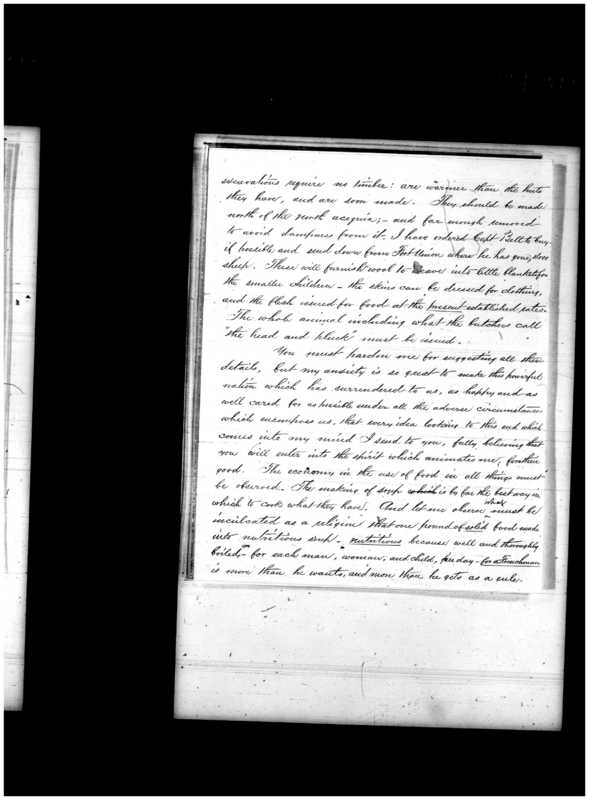 excavations require no timber: are warmer than the huts
they have, and are soon made. They should be made
north of the most acequia; – and far enough removed
to avoid dampness from it. I have ordered Capt Bell to buy
if possible and send down from Fort Union where he has gone,
sheep. These will furnish wool to weave into little blankets for
the smaller children – the skins can be dressed for clothing,
and the flesh issued for food at the present established rates.
The whole animal including what the butchers call
"the head and pluck" must be issued.
You must pardon me for suggesting all these
details, but my anxiety is so great to make this powerful
nation which has surrendered to us, as happy and as
well cared for as possible under all the adverse circumstances
which encompass us, that every idea looking to this end which
comes into my mind I send to you, fully believing that
you will enter into the spirit which animates me, for their
good. The economy in the use of food in all things must
be observed. The making of soup which is by far the best way in
which to cook what they have. And let me observe which must be
inculcated as a religion that one pound of solid food made
into nutritious soup – nutritious because well and thoroughly
boiled – for each man, woman, and child, per day – for a Frenchman
is more than he wants, and more than he gets as a rule.